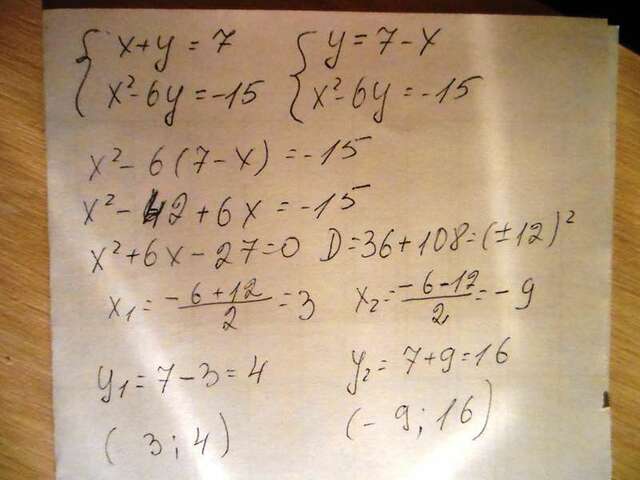 { x+y=7 { y=7-x
x²-6y=-15 x²-6y=-15
x²-6(7-x)=-15
x²-42+6x=-15
x²+6x-27=0 D=36+108=(±12)²
x₁=(-6+12)/2=3 x₂=(-6-12)/2=-9
y₁=7-3=4 y₂=7+9=16
(3;4) (-9;16)